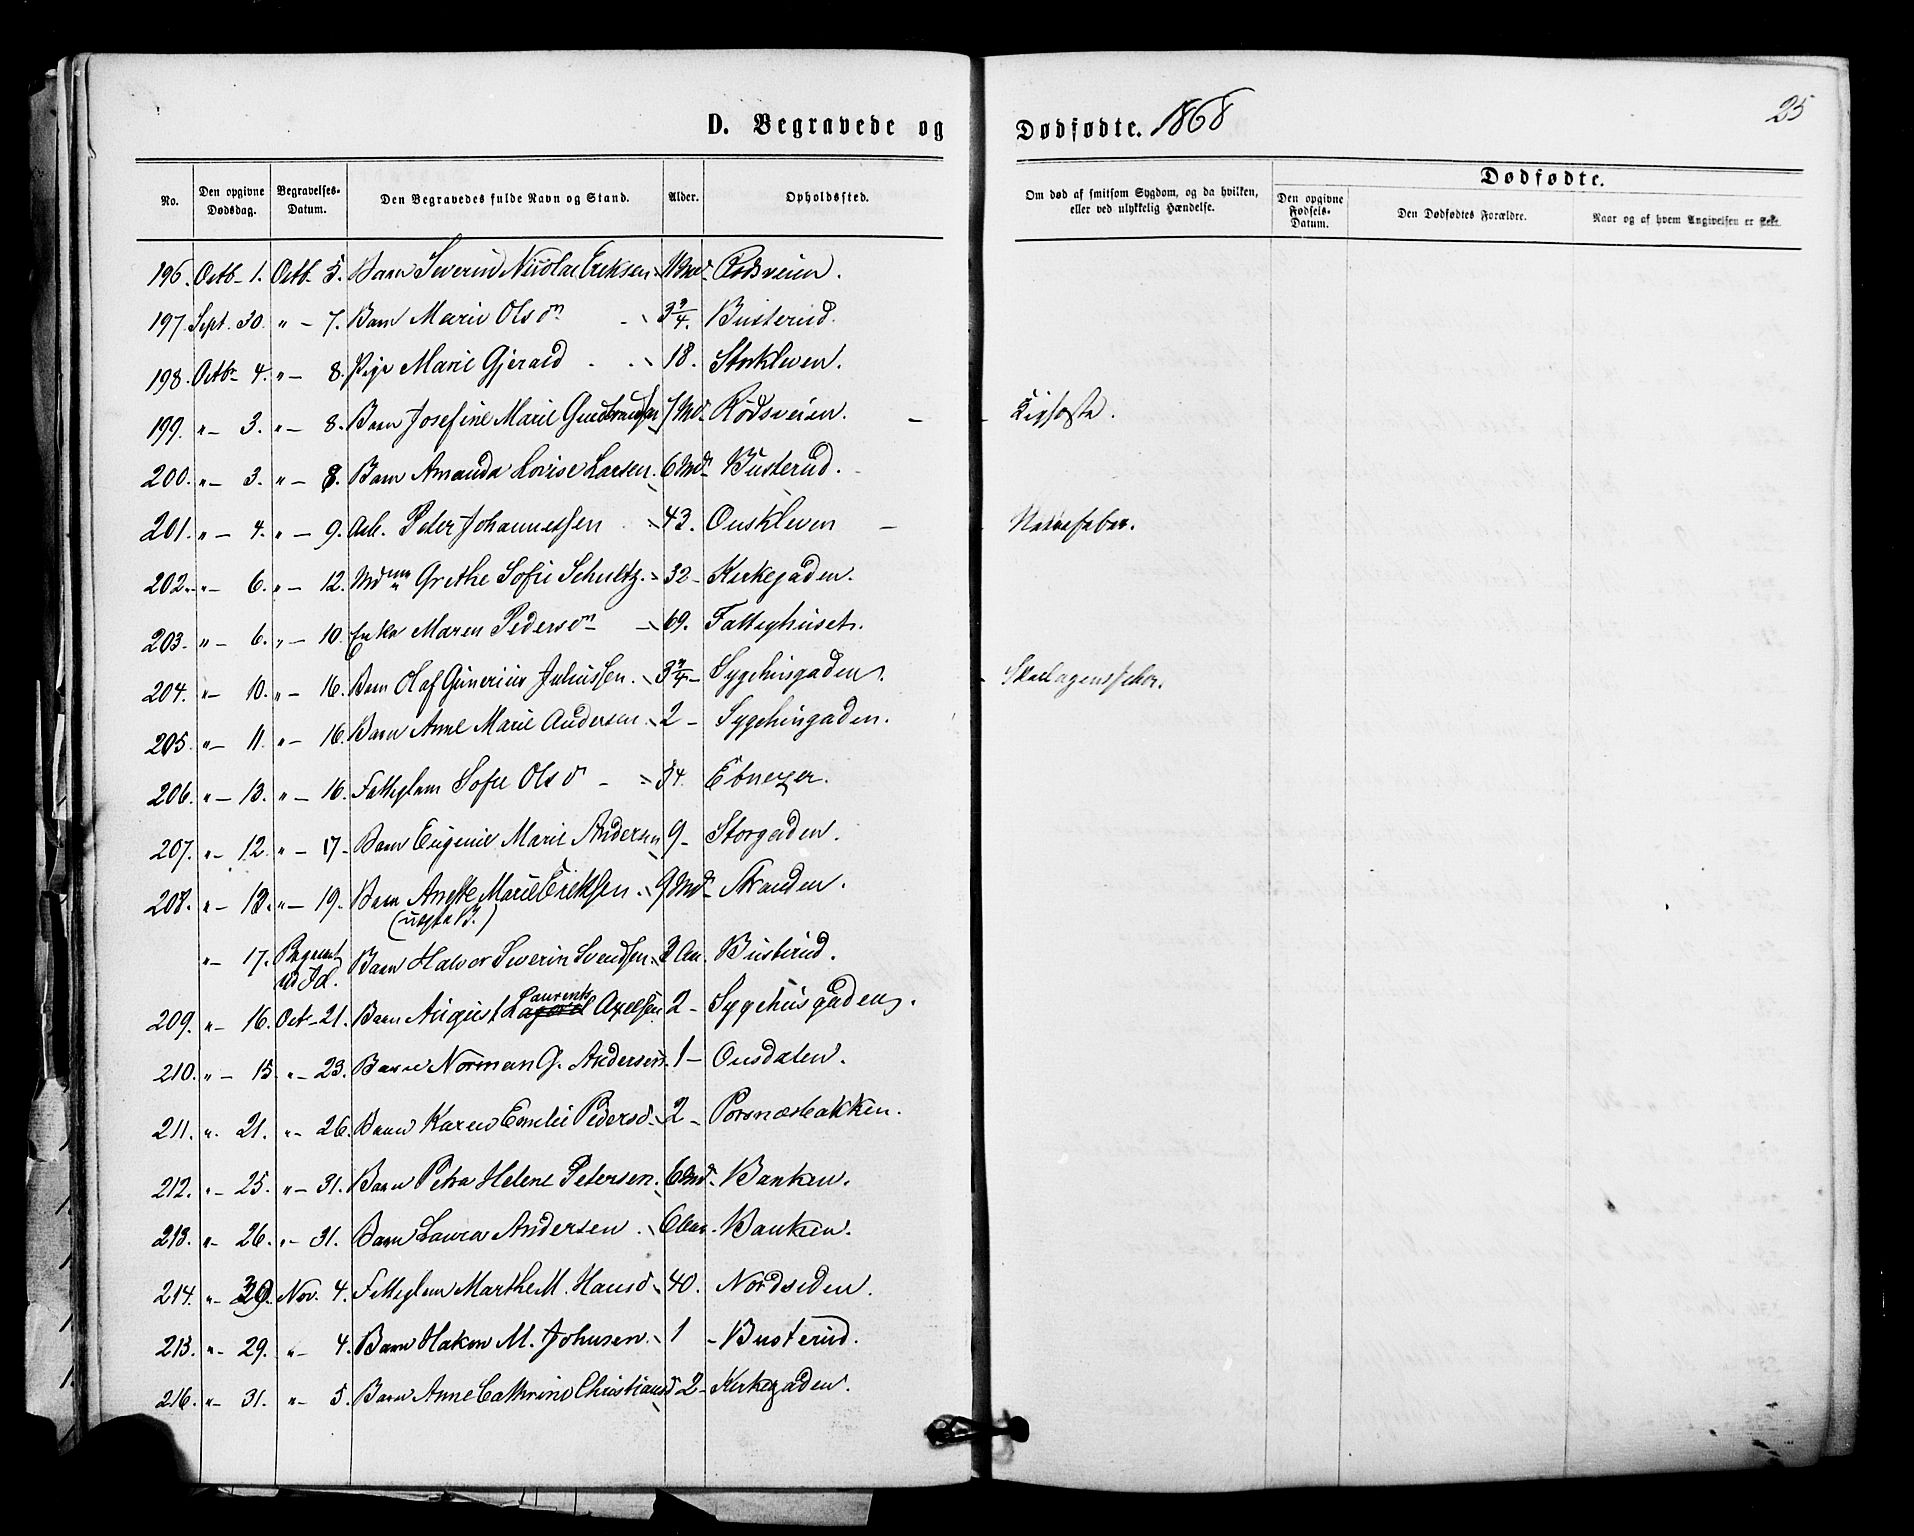 D. Begravede og Dødfødte. 1868
25
No.
Den opgivne Dødsdag.
Begravelses-Datum.
Den Begravedes fulde Navn og Stand.
Alder.
Opholdssted.
Om død af smitsom Sygdom, og da hvilken, eller ved ulykkelig Hændelse.
Dødfødte.
Den opgivne Fødsels-Datum.
Den Dødfødtes Forældre.
Naar og af hvem Angivelsen er skeet.
196. Octb. 1. Octb. 5. Barn Severin Nicolai Eriksen 11 Md. Rødsveien.
197. Sept. 30. " — 7. Barn Marie Olsdn 3 3/4. Busterud.
198. Octbr 4. " — 8. Pige Marie 18.
199. " — 3. " — 8. Barn Josefine Marie Gudbrandsen 7 Md. Rødsveien. —
200. " — 3. " — 8. Barn Amanda Lovise Larsen. 6 Md. Busterud.
201. " — 4. " — 9. Arb. Peter Johannessen 43. Ouskleven — Nervefeber.
202. " — 6. " — 12. Mdme Grethe Sofie Schultz. 32 — Kirkegaden.
203. " — 6. " — 10. Enke Maren Pedersdn 69. Fattighuset.
204. " — 10. " — 16. Barn Olaf Gunerius Juliussen. 3 3/4 — Sygehusgaden. — Skarlagensfeber.
205. " — 11. " — 16. Barn Anne Marie Andersen. 2 — Sygehusgaden.
206. " — 13. " — 16. Fattiglem Sofie Olsd — 34. Ebnezer.
207. " — 12. " — 17. Barn Eugenie Marie Andersen 9 — Storgaden.
208. " — 13. " — 19. Barn Anette Marie Eriksen. 9 Md. Stranden.
(uægte B.)
" — 17. Begravet ved Id. Barn Halvor Severin Svendsen. 3 Aar. Busterud.
209. " — 16. Oct — 21. Barn August Laurents Axelsen 2 — Sygehusgaden.
210. " — 15. " — 23. Barn Norman G. Andersen. 1 — Ousdalen.
211. " 21. " — 26. Barn Karen Emilie Pedersd. 2 — Porsnæsbakken.
212. " — 25. " — 31. Barn Petra Helene Petersen. 6 Md. Banken.
213. " — 26. " — 31. Barn Laura Andersen. 6 Aar. Banken.
214. " — 30. Nov. 4. Fattiglem Marthe M. Hansd 40. Nordsiden.
215. " — 29. " — 4. Barn Hakon M. Johnsen. 1 — Busterud.
216. " — 31. " — 5. Barn Anne Cathrine Christiansd 2 — Kirkegaden.